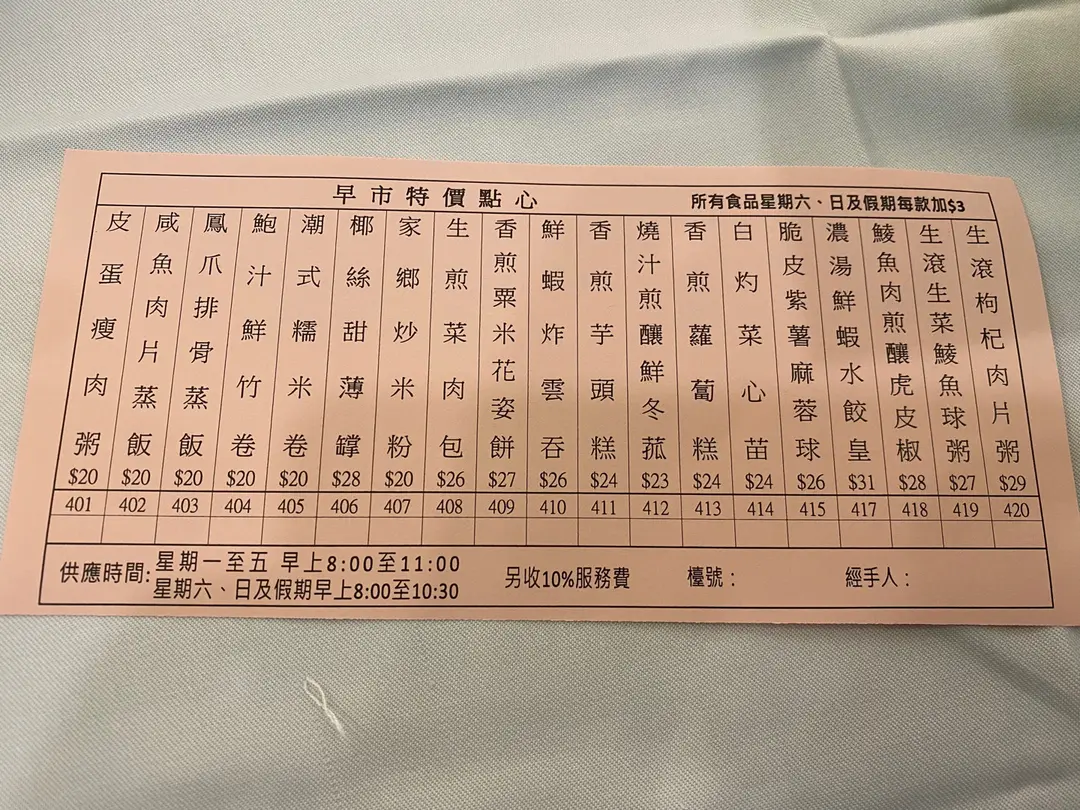 早市特價點心
所有食品星期六、日及假期每款加$3
皮蛋瘦肉粥 $20 401
咸魚肉片蒸飯 $20 402
鳳爪排骨蒸飯 $20 403
鮑汁鮮竹卷 $20 404
潮式糯米卷 $20 405
椰絲甜薄罉 $28 406
家鄉炒米粉 $20 407
生煎菜肉包 $26 408
香煎粟米花姿餅 $27 409
鮮蝦炸雲吞 $26 410
香煎芋頭糕 $24 411
燒汁煎釀鮮冬菰 $23 412
香煎蘿蔔糕 $24 413
白灼菜心苗 $24 414
脆皮紫薯麻蓉球 $26 415
濃湯鮮蝦水餃皇 $31 417
鯪魚肉煎釀虎皮椒 $28 418
生滾生菜鯪魚球粥 $27 419
生滾枸杞肉片粥 $29 420
供應時間:
星期一至五 早上8:00至11:00
星期六、日及假期早上8:00至10:30
另收10%服務費
檯號：
經手人：